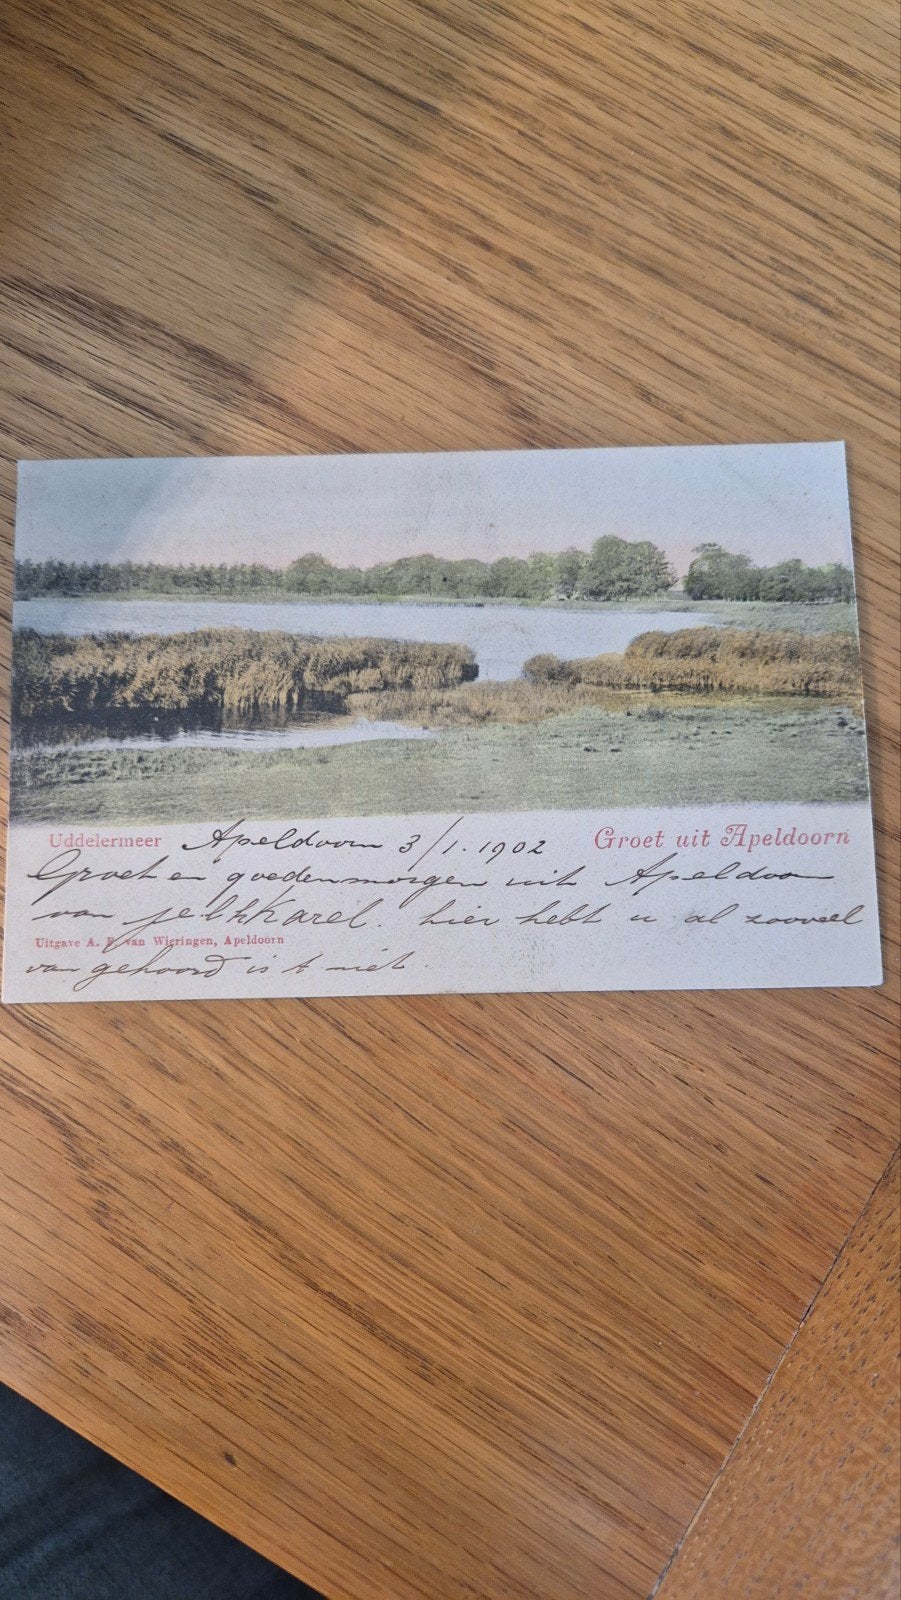 Uddelermeer Apeldoorn 3/1. 1902 Groet uit Apeldoorn
Groet en goedenmorgen uit Apeldoorn
van Karel. hier hebt u al zooveel
Uitgave A. F. van Wieringen, Apeldoorn
van gehoord is 't niet.